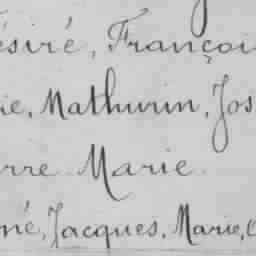 ésiré, Françoi
ie, Mathurin, Jos
rre Marie
né, Jacques, Marie,